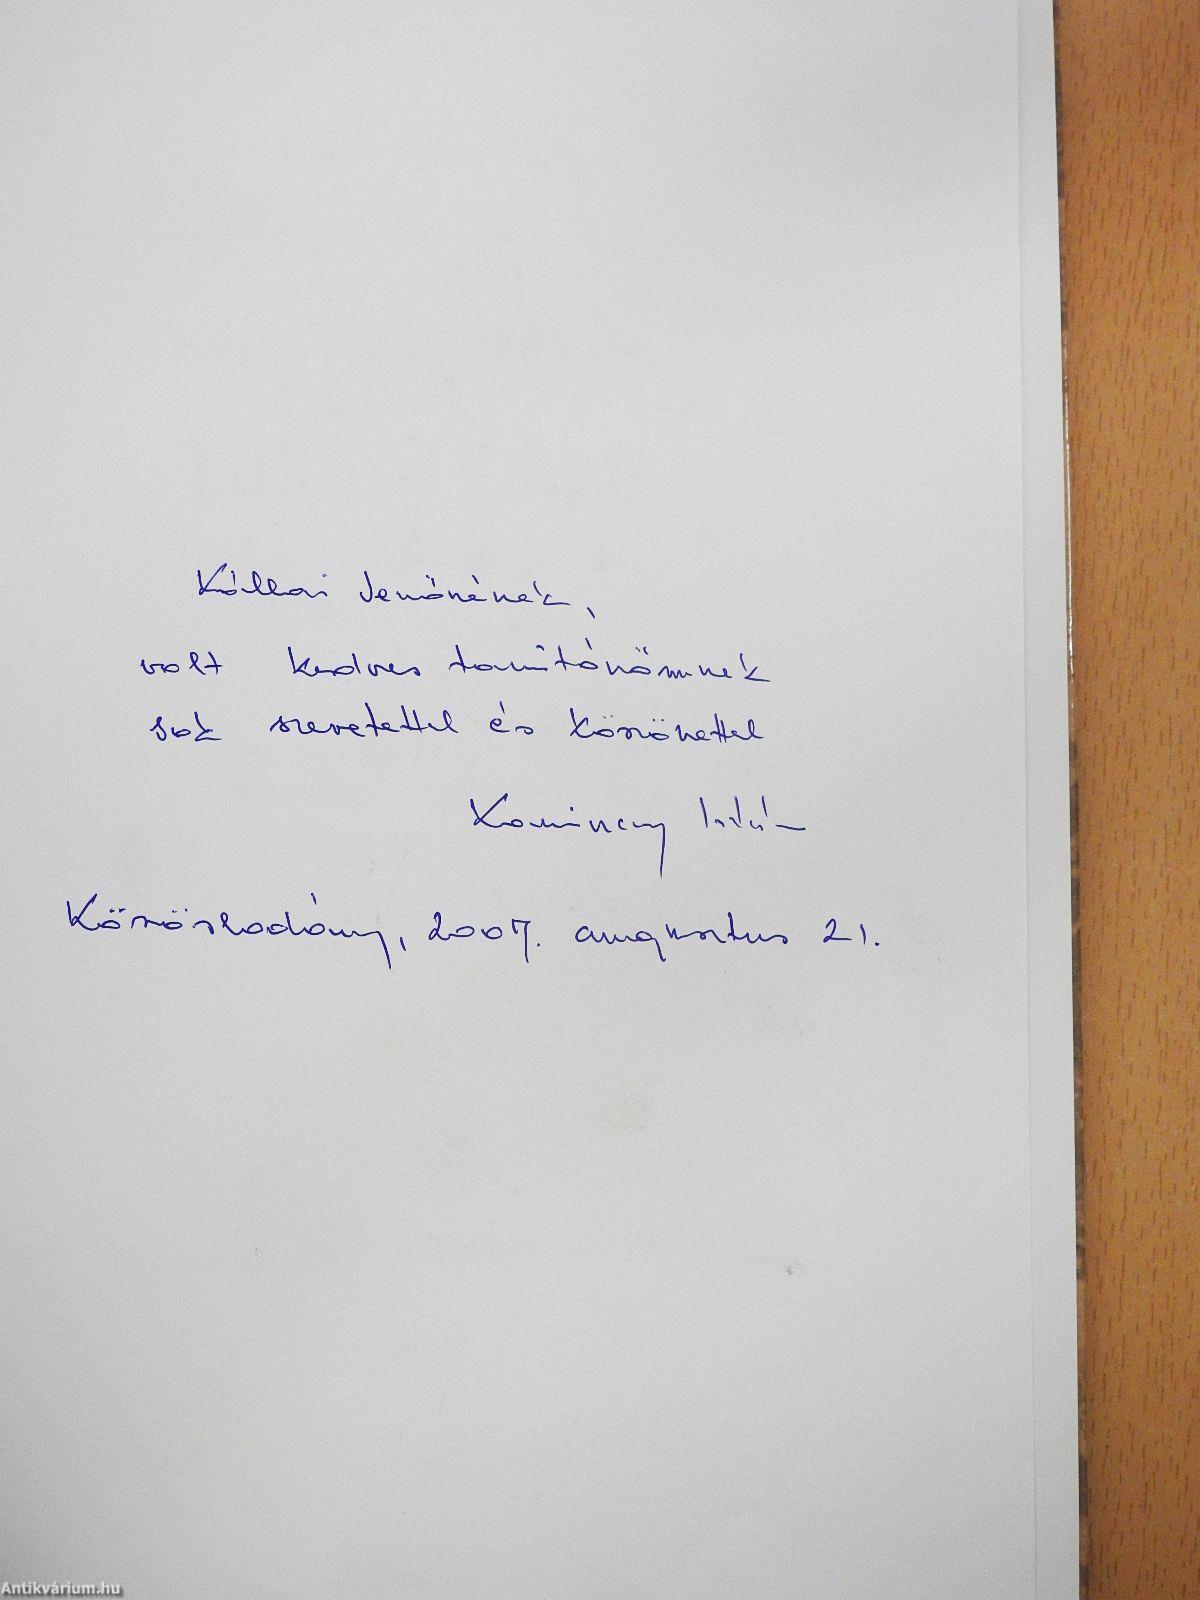 Kállai Jenőnének,
volt kedves tanítónőmnek
sok szeretettel és köszönettel
István
Körösladány, 2007. augusztus 21.
Antikvárium.hu